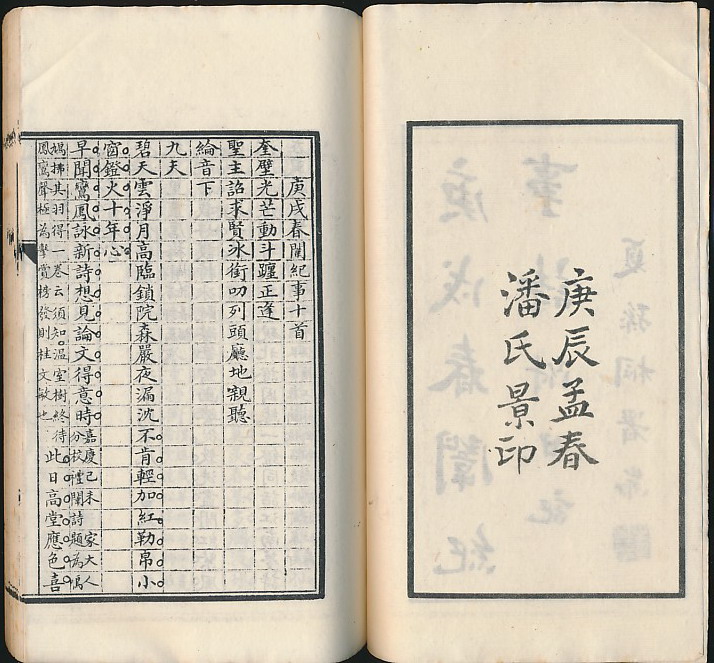 庚辰孟春
潘氏景印
庚戌春闈紀事十首
奎壁光芒動斗躔正逢
聖主詔求賢冰銜叨列頭廳地親聽
綸音下
九天
碧天雲淨月高臨鎖院森嚴夜漏沈不肯輕加紅勒帛小
窗鐙火十年心
早聞鸞鳳詠新詩想見論文得意時
嘉慶己未 家大人
分校禮闈詩題為鳴
鳩拂其羽得一卷云須知溫室樹終待
鳳鸞聲極為擊賞榜發則桂文敏也
此日高堂應色喜